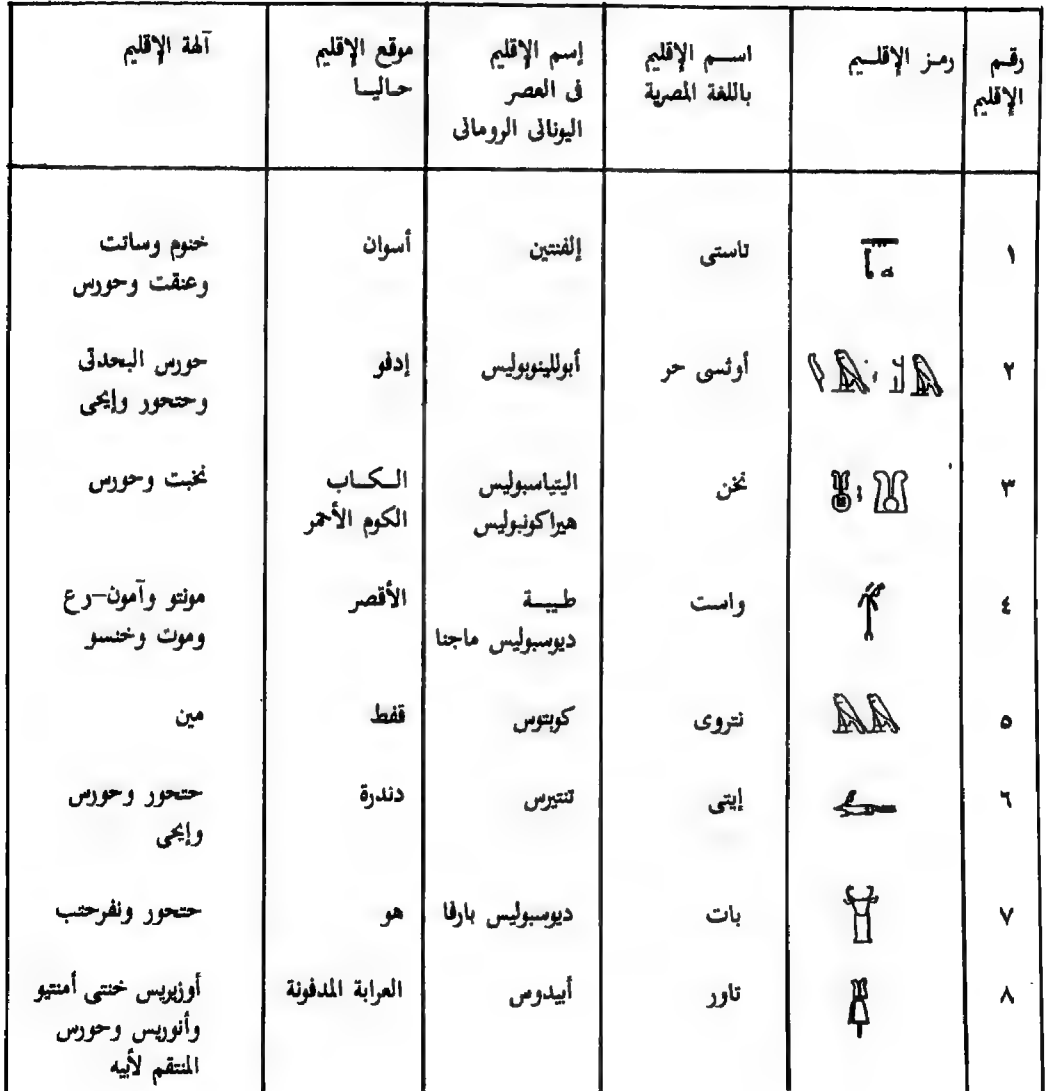 رقم الإقليم | رمز الإقليم | اسم الإقليم باللغة المصرية | إسم الإقليم فى العصر اليونانى الرومانى | موقع الإقليم حاليا | آلهة الإقليم
١ | تاستى | إلفنتين | أسوان | خنوم وساتت وعنقت وحورس
٢ | ؛ | أوثسى حر | أبوللينوبوليس | إدفو | حورس البحدتى وحتحور وإيحى
٣ | ؛ | نخن | اليتياسبوليس هيراكونبوليس | الكاب الكوم الأحمر | نخبت وحورس
٤ | واست | طيبة ديوسبوليس ماجنا | الأقصر | مونتو وآمون-رع وموت وخنسو
٥ | نتروى | كوبتوس | قفط | مين
٦ | إيتى | تنتيرس | دندرة | حتحور وحورس وإيحى
٧ | بات | ديوسبوليس بارفا | هو | حتحور ونفرحتب
٨ | تاور | أبيدوس | العرابة المدفونة | أوزيريس خنتى أمنتيو وأنوريس وحورس المنتقم لأبيه